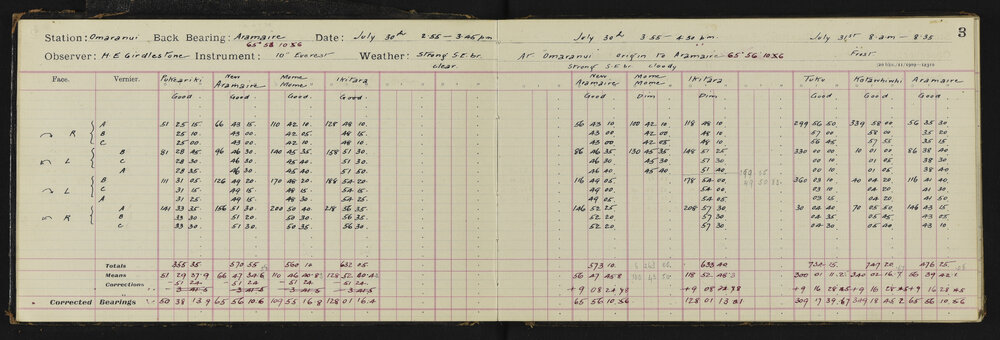 3
Station: Omaranui Back Bearing: Aramaire Date: July 30th 2·55 – 3·45 pm July 30th 3·55 – 4·30 pm. July 31st 8 am – 8·35
65° 56 10·56
Observer: H E Girdlestone Instrument: 10" Everest Weather: Strong S.E. br. At Omaranui Origin to Aramaire 65° 56 10·56 Frost
clear Strong S.E br cloudy
Face. Vernier. Pukeariki New Aramaire Mome Mome Ikitara New Aramaire Mome Mome Ikitara Toko Kotarihiwhi Aramaire
Good Good Good Good Good Dim Dim Good Good Good
R A 51 25 15 66 43 15 110 42 10 128 48 10 56 43 10 100 42 10 118 48 10 299 56 50 339 58 00 56 35 30
B 25 10 43 00 42 05 48 15 43 00 42 00 48 10 57 00 58 00 35 20
C 25 00 43 00 42 10 48 10 43 00 42 05 48 10 56 45 57 55 35 15
L B 81 28 45 96 46 30 140 45 35 158 51 30 86 46 35 130 45 35 148 51 25 330 00 00 10 01 00 86 38 40
C 28 30 46 30 45 40 51 30 46 30 45 30 51 30 00 10 01 05 38 30
A 28 35 46 30 45 40 51 50 46 40 45 40 51 40 00 10 01 05 38 40
L B 111 31 05 126 49 20 170 48 20 188 54 20 116 49 05 178 54 00 360 03 10 40 04 20 116 41 40
C 31 15 49 15 48 15 54 15 49 00 54 00 03 10 04 20 41 30
A 31 25 49 15 48 30 54 25 49 05 54 05 03 15 04 20 41 50
R A 141 33 35 156 51 30 200 50 40 218 56 35 146 52 25 208 57 30 30 04 40 70 05 50 146 43 15
B 33 30 51 20 50 35 56 35 52 20 57 30 04 35 05 45 43 05
C 33 30 51 30 50 30 56 30 52 20 57 30 04 30 05 40 43 10
Totals 355 35 570 55 560 10 632 05 573 10 633 40 734 15 747 20 476 25
Means 51 29 37·9 66 47 34·6 110 46 40·8 128 52 40·4 56 47 45·8 118 52 48·3 300 01 11·2 340 02 16·7 56 39 42·1
Corrections - 51 24 - 51 24 - 51 24 - 51 24
+9 08 24·78 +9 08 24·78 +9 16 28·45 +9 16 28·45 +9 16 28·45
Corrected Bearings 50 38 13·9 65 56 10·6 109 55 16·8 128 01 16·4 65 56 10·56 128 01 13·1 309 17 39·67 349 18 45·2 65 56 10·56